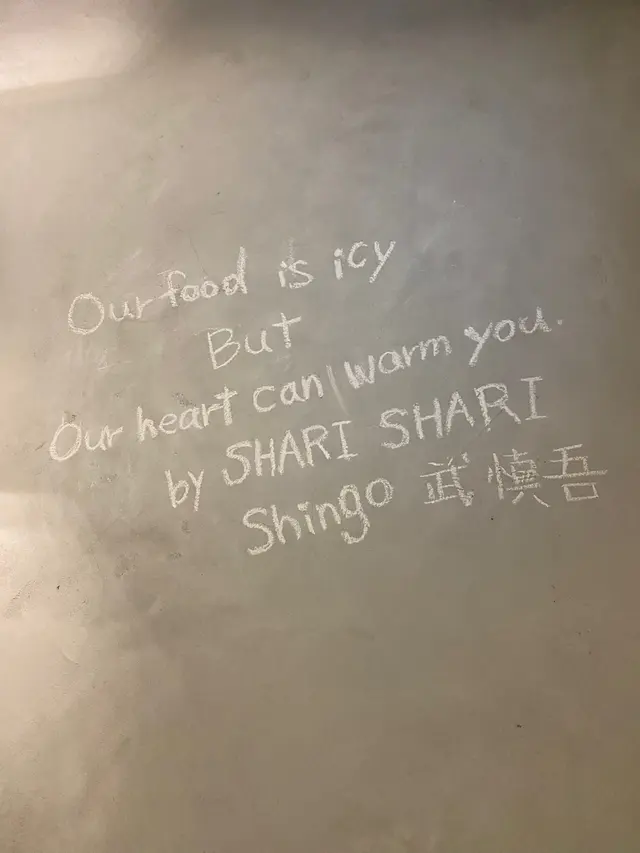 Our food is icy
But
Our heart can warm you.
by SHARI SHARI
Shingo 武慎吾